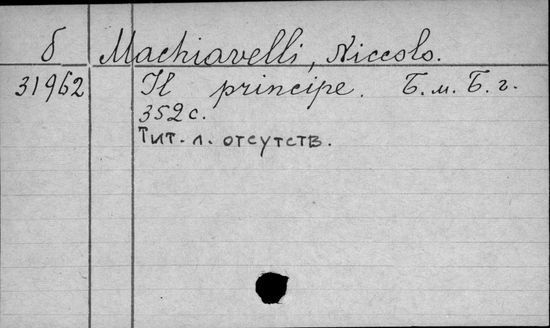 б Machiavelli, Niccolo.
31962 Il principe. Б.м. Б.г.
352 с.
Тит. л. отсутств.